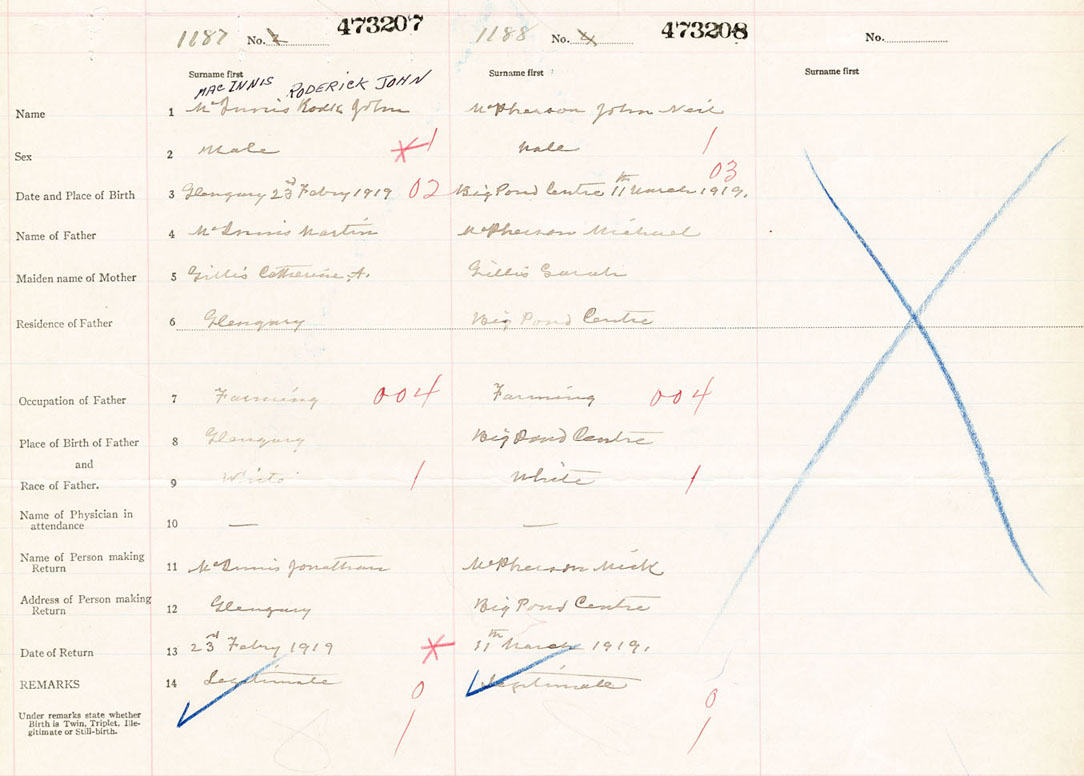 1187 No. 2 473207 1188 No. 4 473208 No.
Surname first Surname first Surname first
MACINNIS RODERICK JOHN
Name 1 McInnis Rodk John McPherson John Neil
Sex 2 Male 1 Male 1
03
Date and Place of Birth 3 Glengary 23rd Febry 1919 02 Big Pond Centre 11th March 1919.
Name of Father 4 McInnis Martin McPherson Michael
Maiden name of Mother 5 Gillis Catherine A. Gillis Sarah
Residence of Father 6 Glengary Big Pond Centre
Occupation of Father 7 Farming 004 Farming 004
Place of Birth of Father 8 Glengary Big Pond Centre
and
Race of Father. 9 White 1 White 1
Name of Physician in
attendance 10 — —
Name of Person making
Return 11 McInnis Jonathan McPherson Mick
Address of Person making
Return 12 Glengary Big Pond Centre
Date of Return 13 23rd Febry 1919 11th March 1919.
REMARKS 14 Legitimate 0 Legitimate 0
Under remarks state whether
Birth is Twin, Triplet, Ille-
gitimate or Still-birth. 1 1